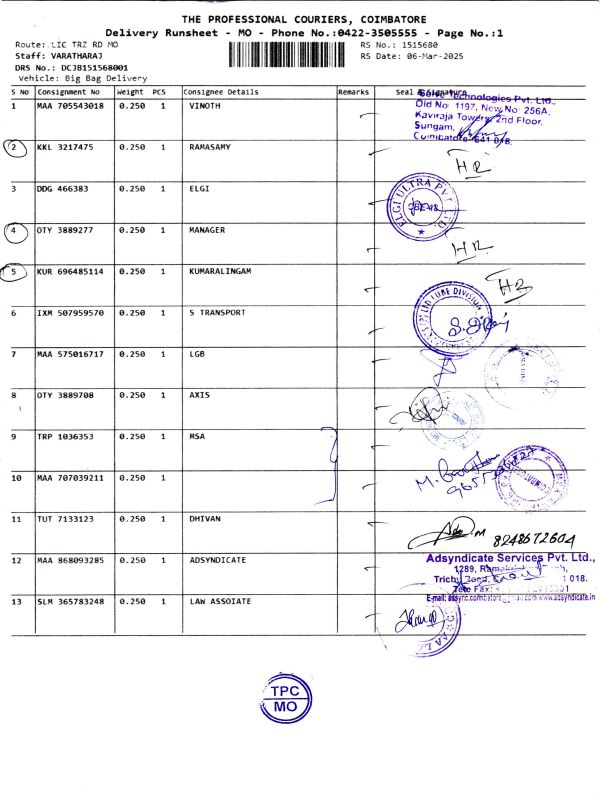 THE PROFESSIONAL COURIERS, COIMBATORE
Delivery Runsheet - MO - Phone No.:0422-3505555 - Page No.:1
Route: LIC TRZ RD MO
RS No.: 1515680
Staff: VARATHARAJ
RS Date: 06-Mar-2025
DRS No.: DCJB151568001
Vehicle: Big Bag Delivery
S No Consignment No Weight PCS Consignee Details Remarks Seal & Signature
1 MAA 705543018 0.250 1 VINOTH
Technologies Pvt. Ltd.,
Old No 1197, New No 256A,
Kaviraja Towers, 2nd Floor,
Sungam,
Coimbatore 641 018.
2 KKL 3217475 0.250 1 RAMASAMY
HR
3 DDG 466383 0.250 1 ELGI
ELGI ULTRA PVT. LTD.
4 OTY 3889277 0.250 1 MANAGER
HR
5 KUR 696485114 0.250 1 KUMARALINGAM
HR
6 IXM 507959570 0.250 1 S TRANSPORT
TUBE DIVISION
7 MAA 575016717 0.250 1 LGB
8 OTY 3889708 0.250 1 AXIS
9 TRP 1036353 0.250 1 MSA
10 MAA 707039211 0.250 1
11 TUT 7133123 0.250 1 DHIVAN
8248672604
12 MAA 868093285 0.250 1 ADSYNDICATE
Adsyndicate Services Pvt. Ltd.,
1289,
Trichy Road, 1 018.
Tele Fax:
13 SLM 365783248 0.250 1 LAW ASSOIATE
TPC
MO